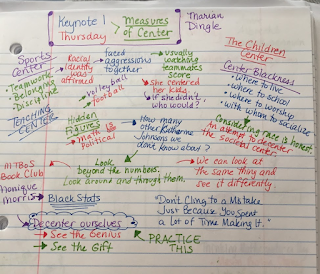 Keynote 1
Thursday
Measures
of Center
Marian
Dingle
Sports
Center
• Teamwork
• Belonging
• Discipline
Racial
identity
was
affirmed
faced
aggressions
together
usually
watching
teammates
score
volleyball
football
she centered
her kids
if she didn't
who would?
The Children
Center
Center Blackness
• Where to live
• where to school
• where to worship
• with whom to socialize
TEACHING
CENTER
Hidden
Figures
Math is
Political
How many
other Katherine
Johnsons we
don't know about?
Considering race is honest
An attempt to decenter
the social center
MTBoS
Book Club
Look
beyond the numbers.
Look around and through them.
We can look at
the same thing and
see it differently.
Monique
Morris
Black Stats
Decenter ourselves
See the Genius
See the Gift
"Don't Cling to a Mistake
Just Because You Spent
a Lot of Time Making it."
PRACTICE
THIS